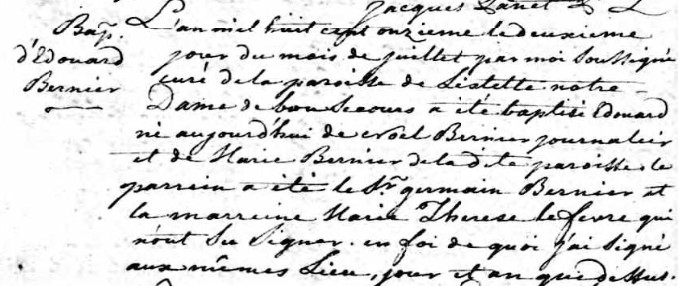 Jacques
Bap.
d'Edouard
Bernier
L'an mil huit cent onzieme le deuxieme
jour du mois de juillet par moi soussigné
curé de la paroisse de Lislette notre-
Dame de bon Secours a été baptisé Edouard
né aujourd'hui de Bernier journalier
et de Marie Bernier de la dte paroisse. le
parrein a été le Sr. germain Bernier et
la marreine Marie Therese lefevre qui
n'ont Su Signer. en foi de quoi j'ai Signé
aux mêmes Lieu, jour et an que dessus.